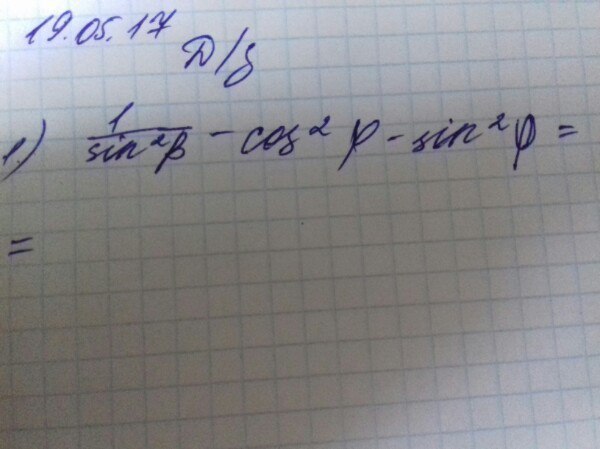 19.05.17
Д/з
1.) 1/sin²β - cos² φ - sin² φ =
=